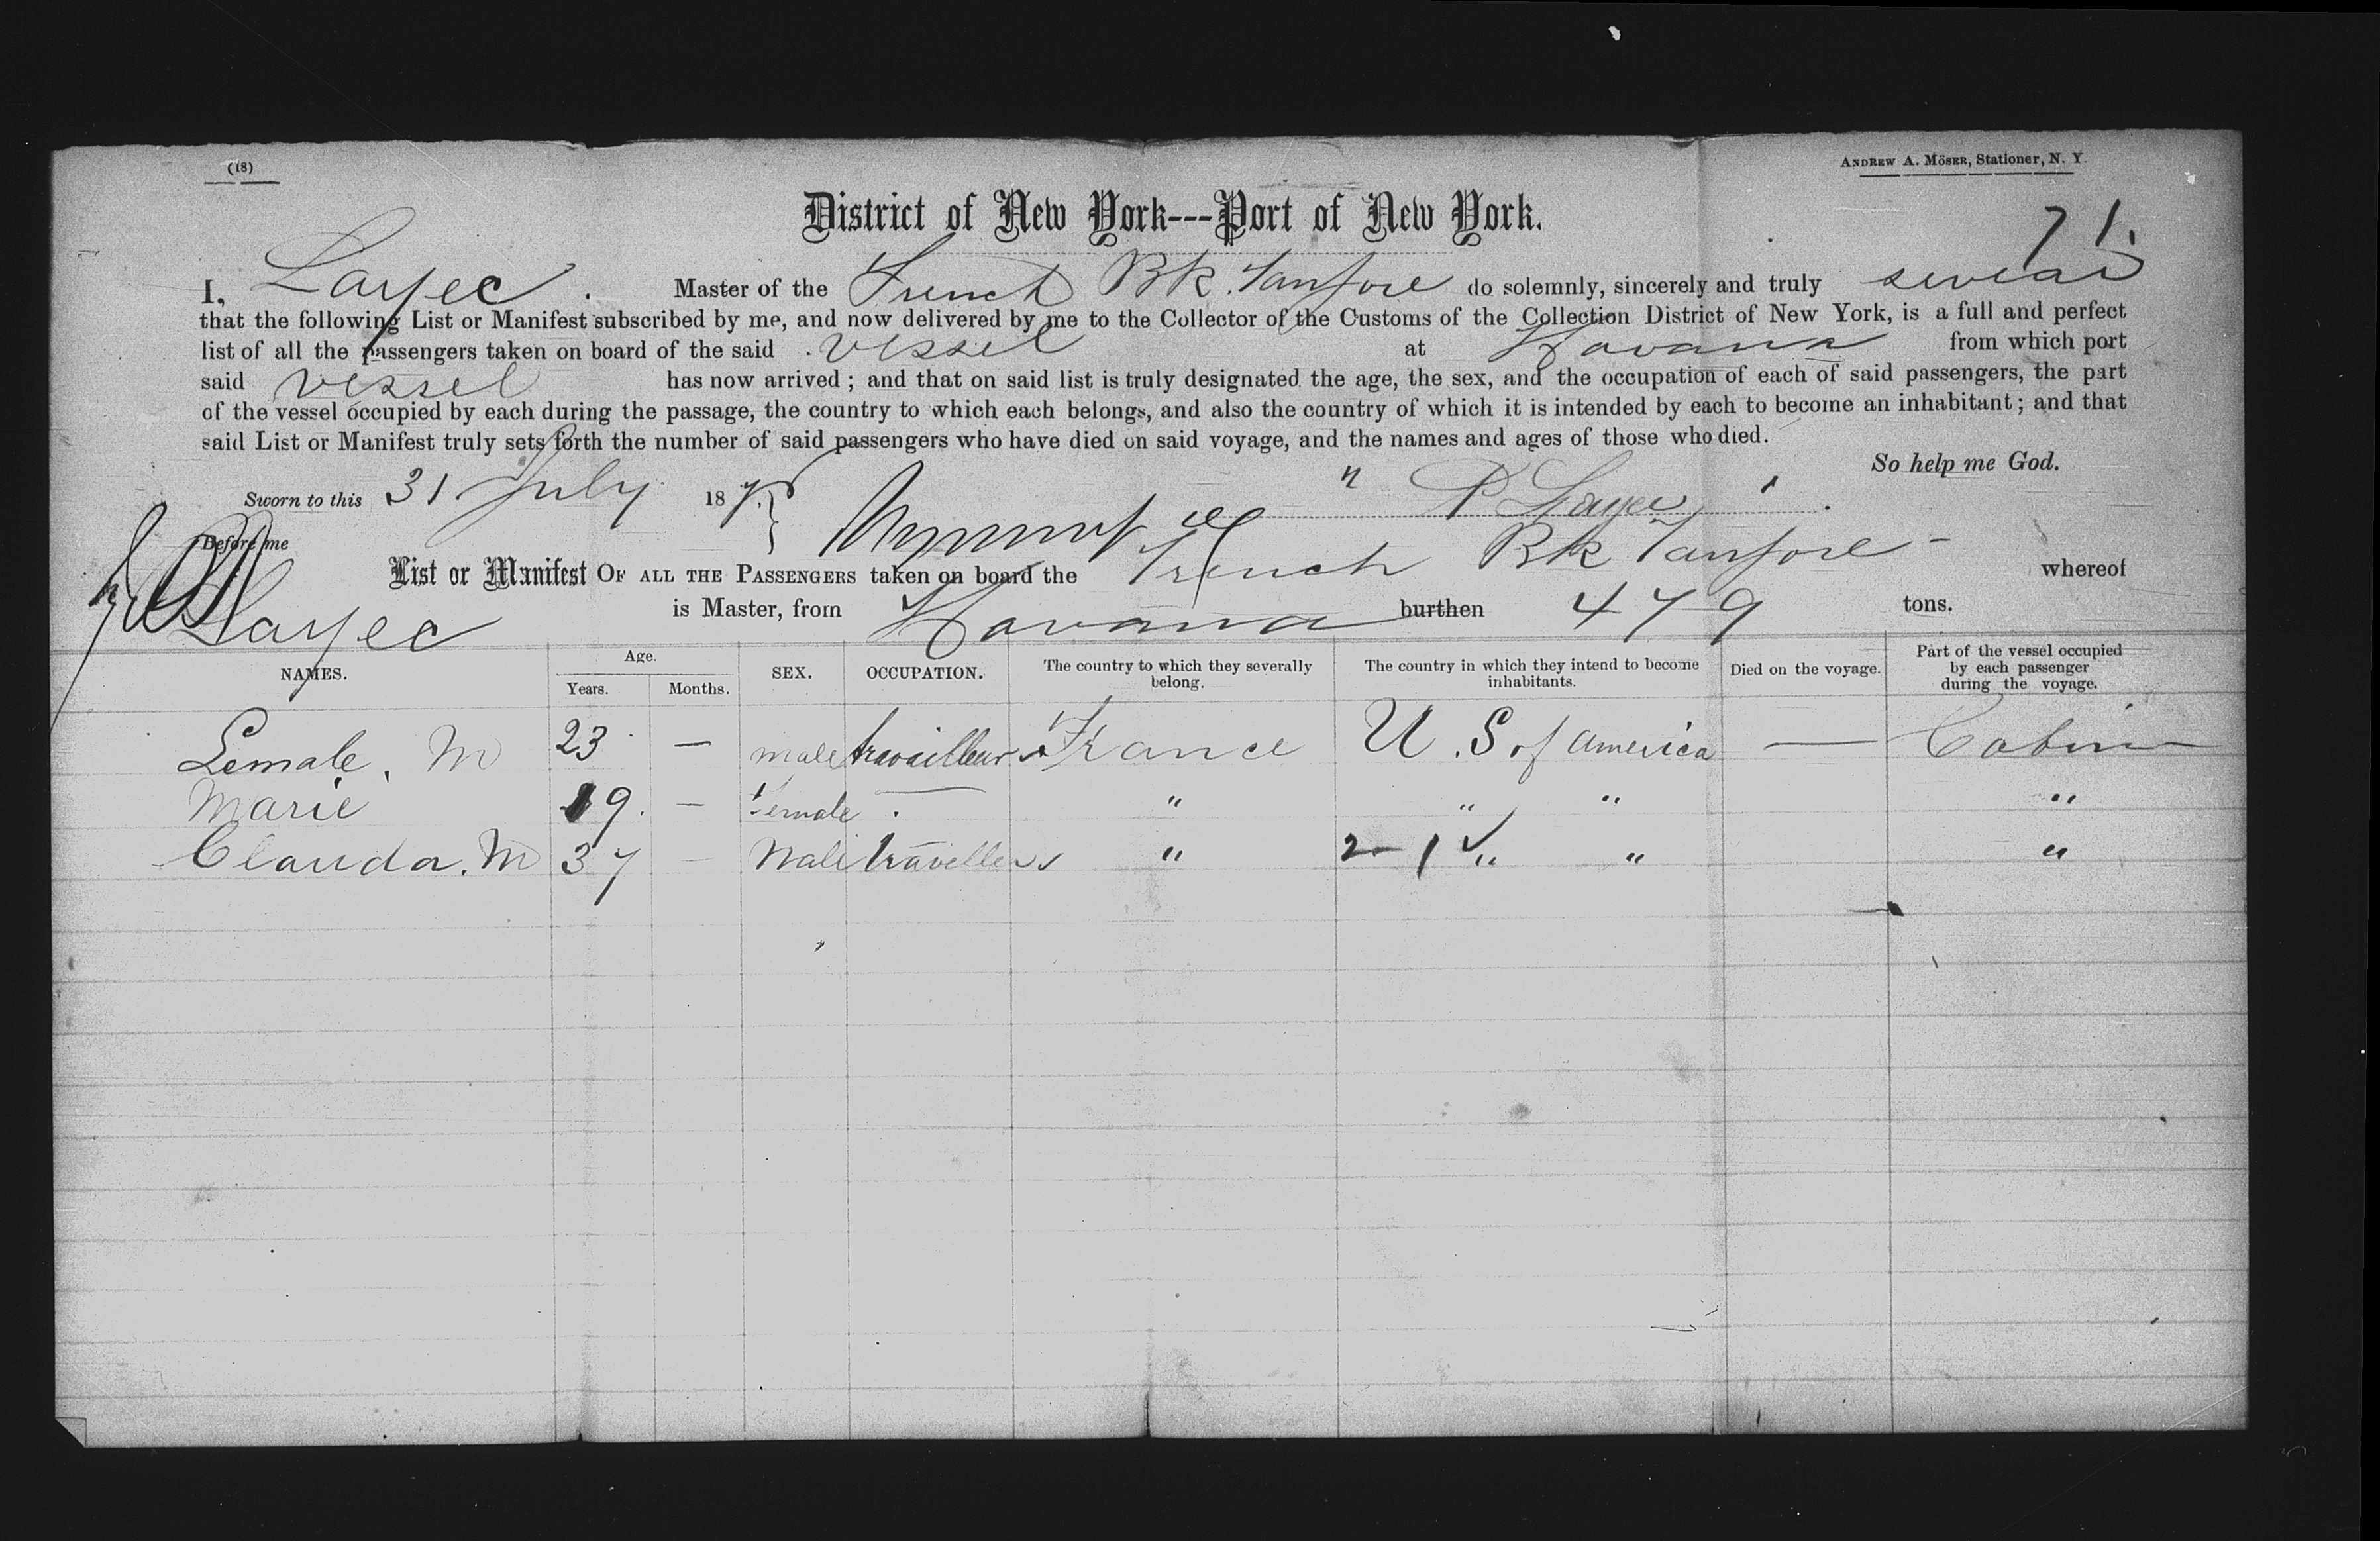 (18)
ANDREW A. MÖSER, Stationer, N. Y.
District of New York---Port of New York.
71.
I, Layec. Master of the French Bk. Tanfore do solemnly, sincerely and truly swear
that the following List or Manifest subscribed by me, and now delivered by me to the Collector of the Customs of the Collection District of New York, is a full and perfect
list of all the passengers taken on board of the said vessel at Havana from which port
said vessel has now arrived; and that on said list is truly designated the age, the sex, and the occupation of each of said passengers, the part
of the vessel occupied by each during the passage, the country to which each belongs, and also the country of which it is intended by each to become an inhabitant; and that
said List or Manifest truly sets forth the number of said passengers who have died on said voyage, and the names and ages of those who died.
So help me God.
Sworn to this 31 July 187 P Layec
Before me
List or Manifest OF ALL THE PASSENGERS taken on board the French Bk Tanfore whereof
Layec is Master, from Havana burthen 479 tons.
NAMES. Age. Years. Months. SEX. OCCUPATION. The country to which they severally belong. The country in which they intend to become inhabitants. Died on the voyage. Part of the vessel occupied by each passenger during the voyage.
Lemale, M 23 — male travailleur France U.S of America — Cabin
Marie 19. — Female — " " " "
Clauda. M 37 — Male travellers " 2-1 ✓ " " "